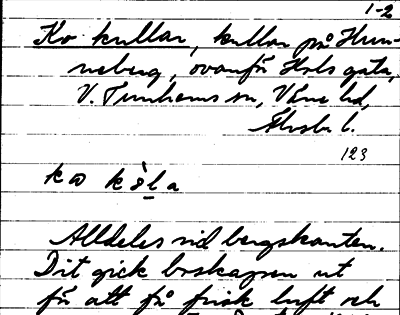 1-2
Ko kullar, kullar på Hun-
neberg, ovanför Hols gata,
V. Tunhems sn, Väne hd,
Älvsb. l.
123
Alldeles vid bergskanten.
Dit gick boskapen ut
för att få frisk luft och